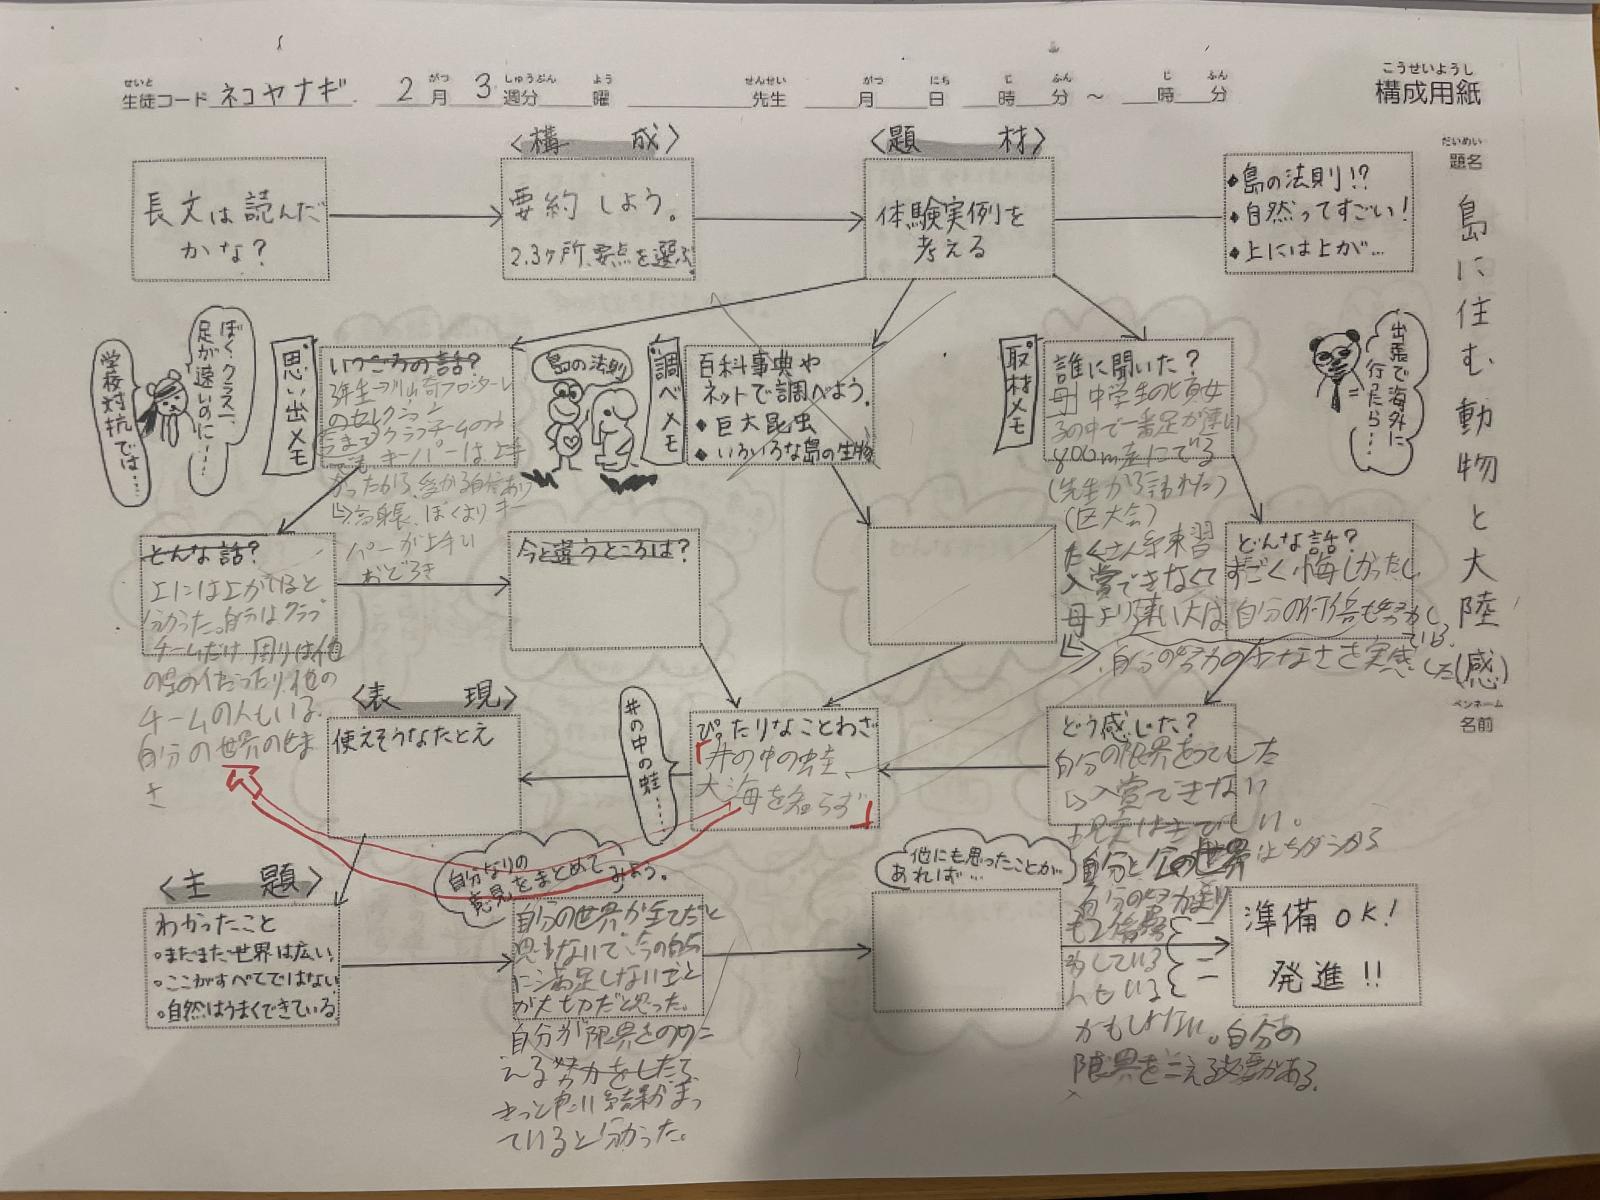 せいと
生徒コード ネコヤナギ 2月 3週分 曜 先生 月 日 時 分 ~ 時 分
がつ しゅうぶん よう せんせい がつ にち じ ふん じ ふん
こうせいようし
構成用紙
だいめい
題名
島に住む動物と大陸
(感)
ペンネーム
名前
長文は読んだ
かな?
<構 成>
要約しよう。
2.3ヶ所、要点を選ぶ。
<題 材>
体験実例を
考える
◆島の法則!?
◆自然ってすごい!
◆上には上が…
学校対抗では……
ぼく、クラス一、
足が速いのに……
思い出メモ
いつごろの話?
3年生
のセレクション
クラブチームの
キーパーは上手
かったから、受かる自信あり
高身長、ぼくよりキー
パーが上手い
おどろき
島の法則
調べメモ
百科事典や
ネットで調べよう。
◆巨大昆虫
◆いろいろな島の生物
取材メモ
誰に聞いた?
母 中学生の頃女
子の中で一番足が速い
800m走にでる
(先生から言われた)
(区大会)
たくさん練習
入賞できなくて
母より速い人は
出張で海外に
行ったら……
どんな話?
すごく悔しかったし
自分の何倍も努力し
ている。
自分の努力の少なさを実感した
そんな話?
上には上がいると
分かった。自分はクラブ
チームだけ、周りは他
の県の人だったり他の
チームの人もいる。
自分の世界のせま
さ
今と違うところは?
<表 現>
使えそうなたとえ
井の中の蛙……
ぴったりなことわざ
「井の中の蛙、
大海を知らず」
どう感じた?
自分の限界をつくした
入賞できない
現実はきびしい。
自分と 世界はちがうから
自分の努力より
も2倍努
力している
人もいる
かもしれない。自分の
限界をこえる必要がある。
<主 題>
わかったこと
○まだまだ世界は広い。
○ここがすべてではない
○自然はうまくできている。
自分なりの
意見をまとめて
みよう。
自分の世界が全てだと
思わないで、今の自分
に満足しないことと
が大切だと思った。
自分が限界をのりこ
える努力をしたら
きっと 良い結果がまっ
ていると分かった。
他にも思ったことが
あれば…
準備OK!
発進!!